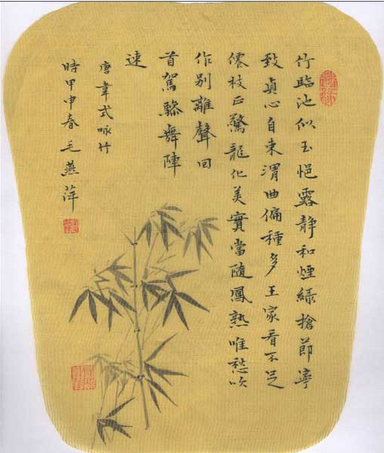 竹臨池似玉悒露靜和煙綠搶節寧
致貞心自束渭曲偏種多王家看不足
僊枝正驚龍化美實當隨鳳熟唯愁吹
作別離聲回
首駕驂舞陣
速
唐韋式咏竹
時甲申春毛燕萍